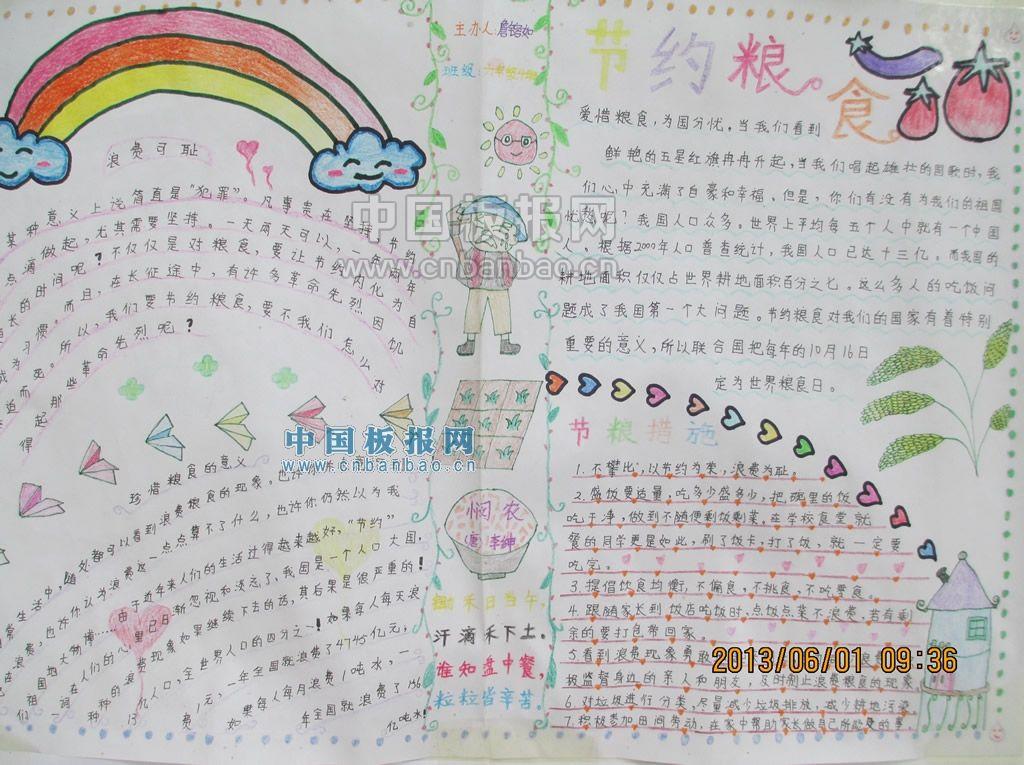 主办人:詹
班级:六年级
节约粮食
爱惜粮食,为国分忧。当我们看到
鲜艳的五星红旗冉冉升起,当我们唱起雄壮的国歌时,我
们心中充满了自豪和幸福。但是,你们有没有为我们的祖国
忧愁呢?我国人口众多。世界上平均每五个人中就有一个中国
人。根据2000年人口普查统计,我国人口已达十三亿。而我国的
耕地面积仅仅占世界耕地面积百分之七。这么多人的吃饭问
题成了我国第一个大问题。节约粮食对我们的国家有着特别
重要的意义,所以联合国把每年的10月16日
定为世界粮食日。
节粮措施
1.不攀比,以节约为荣,浪费为耻。
2.盛饭要适量,吃多少盛多少,把碗里的饭
吃干净,做到不随便剩饭剩菜。在学校食堂就
餐的同学更是如此,刷了饭卡,打了饭,就一定要
吃完。
3.提倡饮食均衡,不偏食,不挑食,不吃零食。
4.跟随家长到饭店吃饭时,点饭点菜不浪费,若有剩
余的要打包带回家。
5.看到浪费现象勇敢
2013/06/01 09:36
被监督身边的亲人和朋友,及时制止浪费粮食的现象
6.对垃圾进行分类,尽量减少垃圾排放,减少耕地污染
7.积极参加田间劳动,在家中帮助家长做自己所能及的事。
浪费可耻
某种意义上说简直是"犯罪"。凡事贵在坚持,节约
点滴做起,尤其需要坚持。一天两天可以,
长的时间呢?不仅仅是对粮食,要让节约内化为自
为习惯。而且,在长征途中,有许多革命先烈因饥
死。所以,我们要节约粮食,要不我们怎么对
那些革命先烈呢?
得起
珍惜粮食的意义
生活中,随处都可以看到浪费粮食的现象。也许你
浪费,也许你认为浪费这一点点算不了什么,也许你仍然以为我
地大物博……由于近年来人们的生活过得越来越好,"节约"
一词在人们的心里日日渐忽视和淡忘了,我国是一个人口大国,
种的浪费现象如果继续下去的话,其后果是很严重的!
13亿人口,全世界人口的四分之一!如果每人每天浪
费1元,一年全国就浪费了4745亿元,
如果每人每月浪费1吨水,一
年全国就浪费了156
亿吨水!
悯农
唐 李绅
锄禾日当午,
汗滴禾下土。
谁知盘中餐,
粒粒皆辛苦。
中国板报网
www.cnbanbao.cn
中国板报网
www.cnbanbao.cn